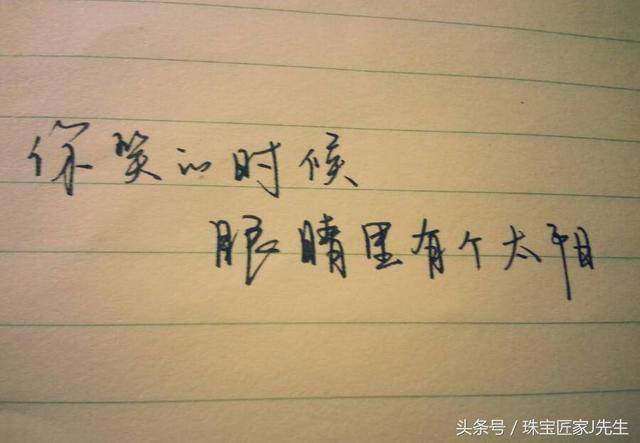 你笑的时候
眼睛里有个太阳
头条号／珠宝匠家J先生